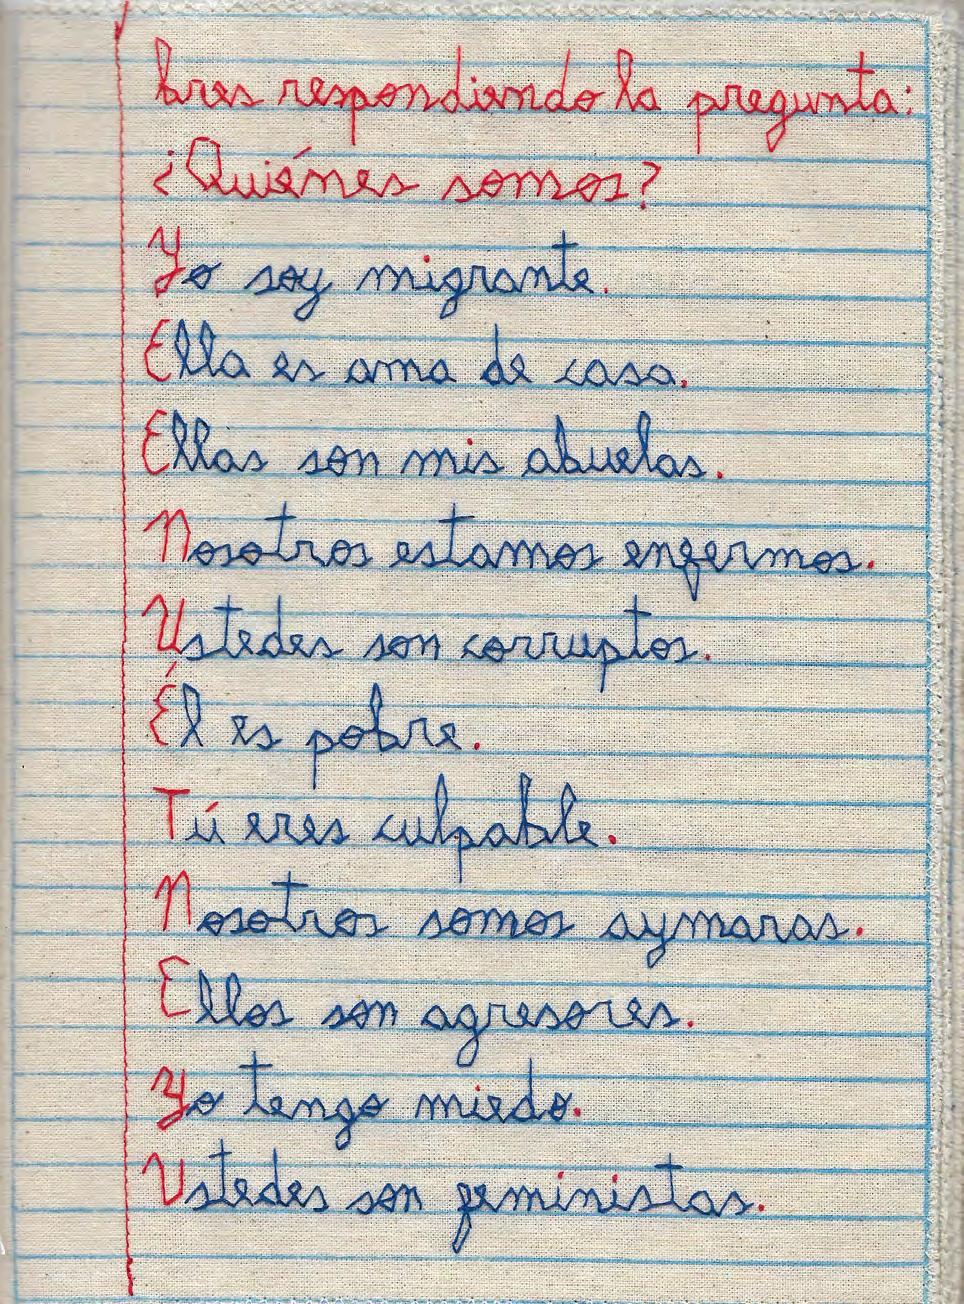 bres respondiendo la pregunta:
¿Quiénes somos?
Yo soy migrante.
Ella es ama de casa.
Ellas son mis abuelas.
Nosotros estamos enfermos.
Ustedes son corruptos.
Él es pobre.
Tú eres culpable.
Nosotros somos aymaras.
Ellos son agresores.
Yo tengo miedo.
Ustedes son feministas.